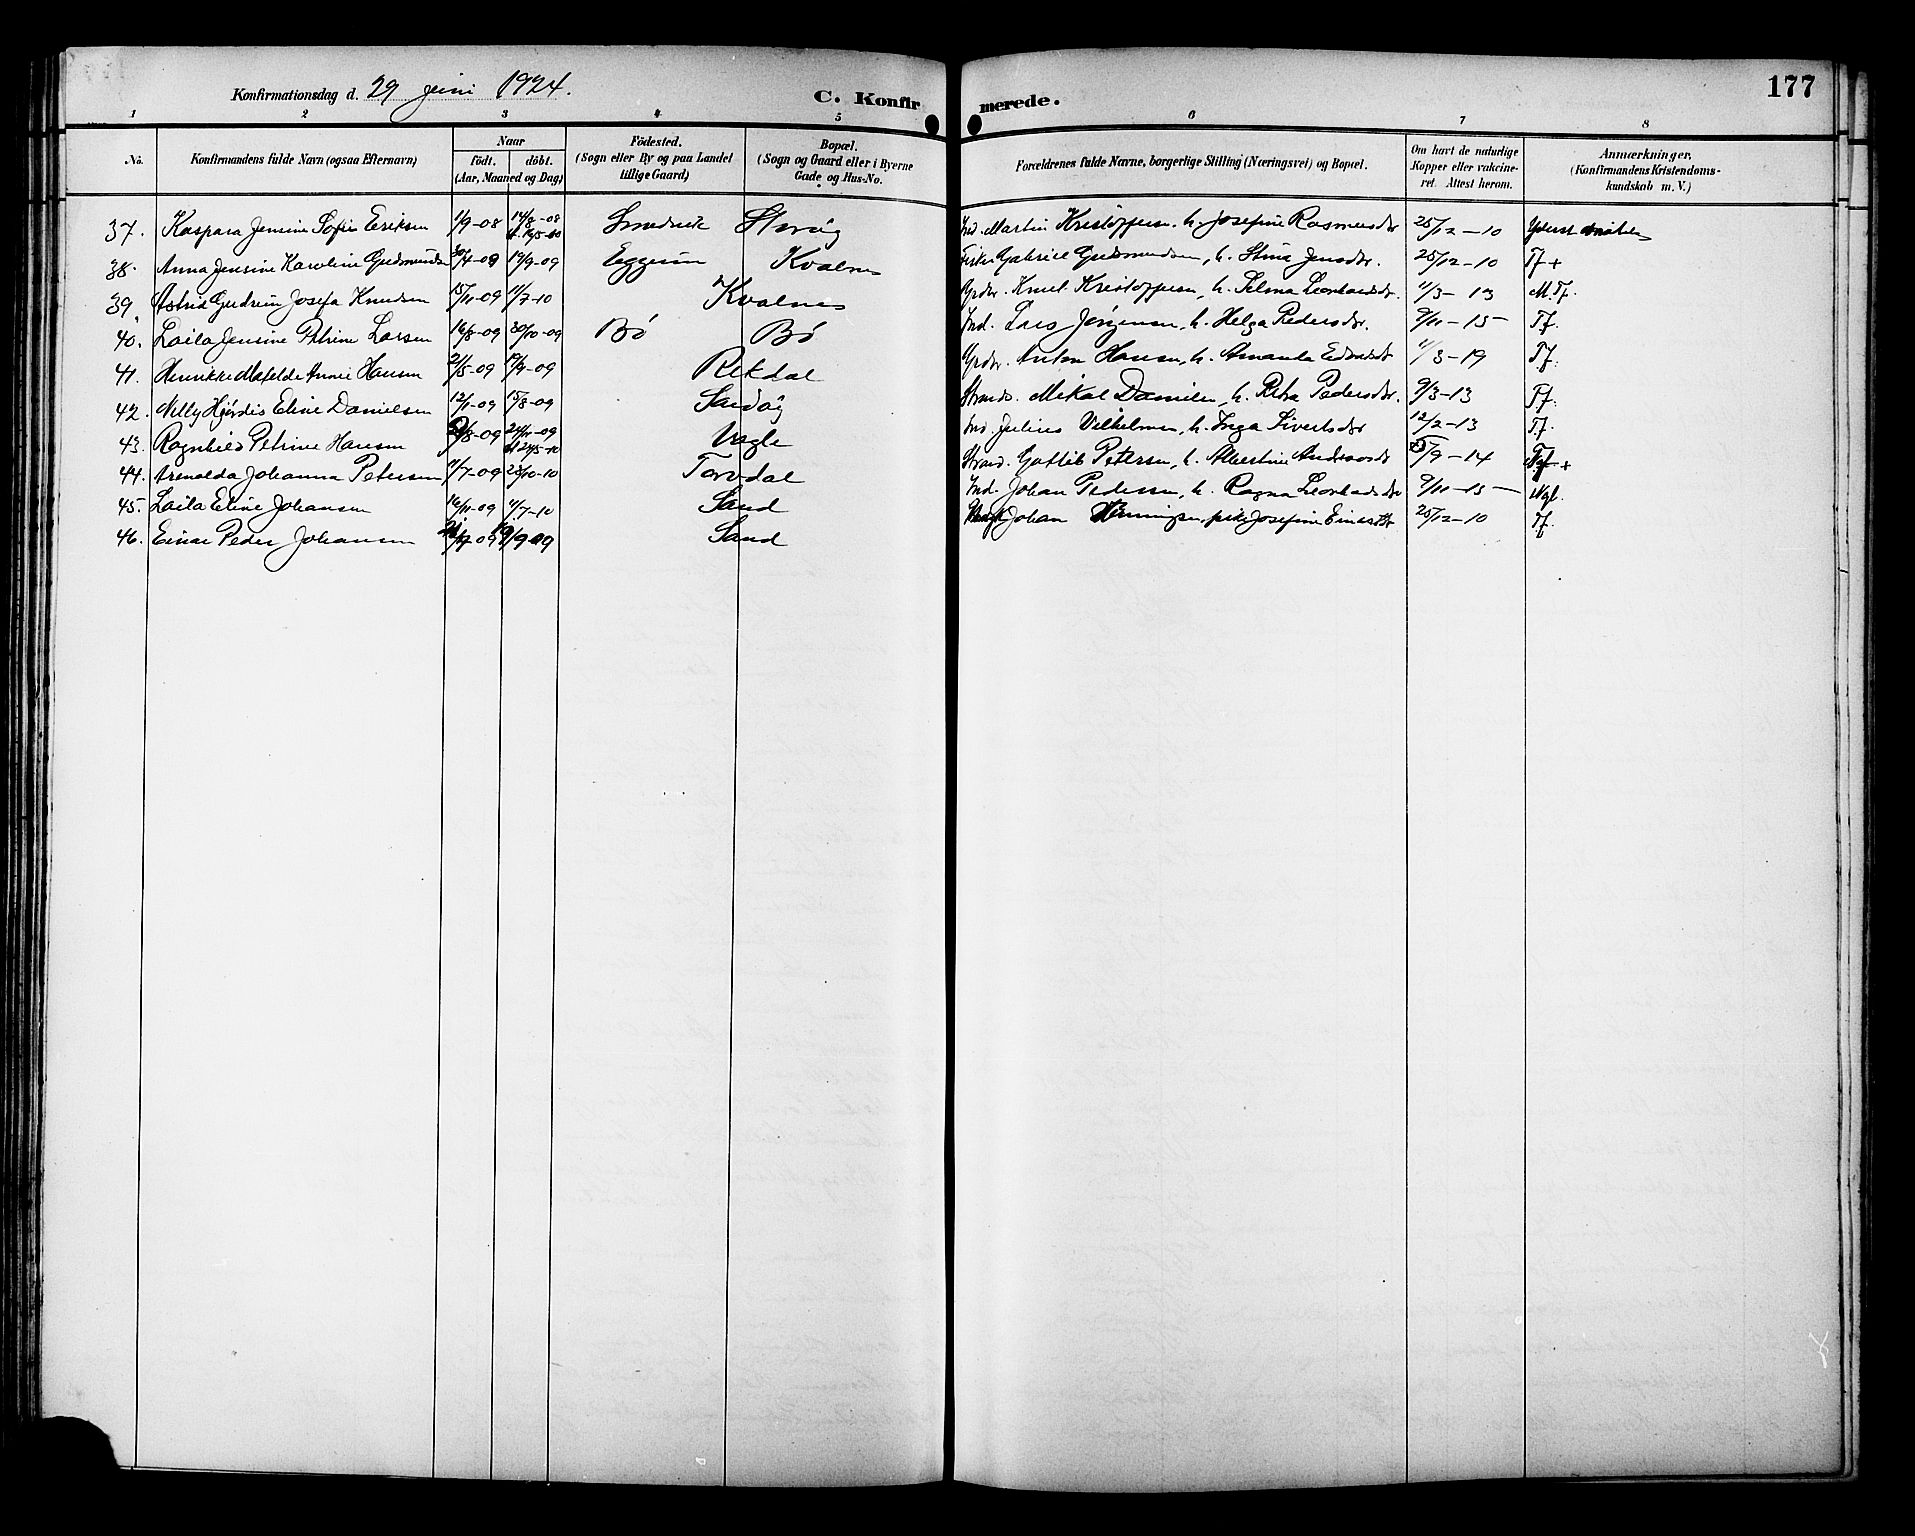 Konfirmationsdag d. 29 juni 1924.
C. Konfirmerede.
177
1 2 3 4 5 6 7 8
No. Konfirmandens fulde Navn (ogsaa Efternavn) Naar födt. döbt. (Aar, Maaned og Dag) Födested. (Sogn eller By og paa Landet tillige Gaard) Bopæl. (Sogn og Gaard eller i Byerne Gade og Hus-No. Forældrenes fulde Navne, borgerlige Stilling (Næringsvei) og Bopæl. Om havt de naturlige Kopper eller vakcineret. Attest herom. Anmærkninger. (Konfirmandens Kristendomskundskab m. V.)
37. Kaspara Jensine Sofie Eriksen 1/9-08 14/8-08 Smedvik Martin Kristoffersen, h. Josefine Rasmusdr 25/12-10
38. Anna Jensine Karoline Gudmundsen 30/4-09 19/9-09 Eggum Kvalnes Fisker Gabriel Gudmundsen, h. Stina Jensdr. 25/12-10 Tf +
39. Astrid Gudrun Josefa Knudsen 15/11-09 11/7-10 Kvalnes Grdbr. Knut Kristoffersen, h. Selma Leonhardsdr. 11/3-13 M.Tf.
40. Laila Jensine Petrine Larsen 16/8-09 30/10-09 Bö Bö Ind. Lars Jörgensen, h. Helga Pedersdr. 9/11-15 Tf.
41. Henrikke Mafelde Annie Hansen 21/5-09 17/7-09 Rekdal Grdbr. Anton Hansen, h. Amanda 11/3-19 Tf.
42. Nelly Hjördis Eline Danielsen 12/1-09 15/8-09 Sandöy Strands. Mikal Danielsen, h. Petra Pedersdr. 9/3-13 Tf.
43. Ragnhild Petrine Hansen /8-09 24/11-09 Vagle Ind. Julius Vilhelmsen, h. Inga Sivertsdr 12/2-13 Tf.
44. Arnolda Johanna Petersen 11/7-09 23/10-10 Torvdal Strand. Gottlib Petersen, h. Albertine Andersdr /9-14
45. Laila Eline Johansen 16/11-09 11/7-10 Sand Ind. Johan Pedersen, h. Ragna Leonhardsdr 9/11-15 Ngf.
46. Einar Peder Johansen 19/9-09 Sand Johan Henningsen, pike Josefine Einarsdr 25/12-10 Tf.